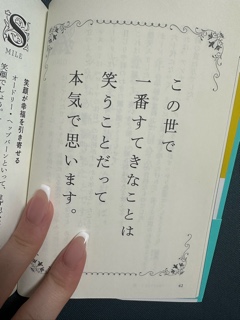 この世で
一番すてきなことは
笑うことだって
本気で思います。
S
MILE
笑顔が幸福を引き寄せる
オードリー・ヘップバーンといって、